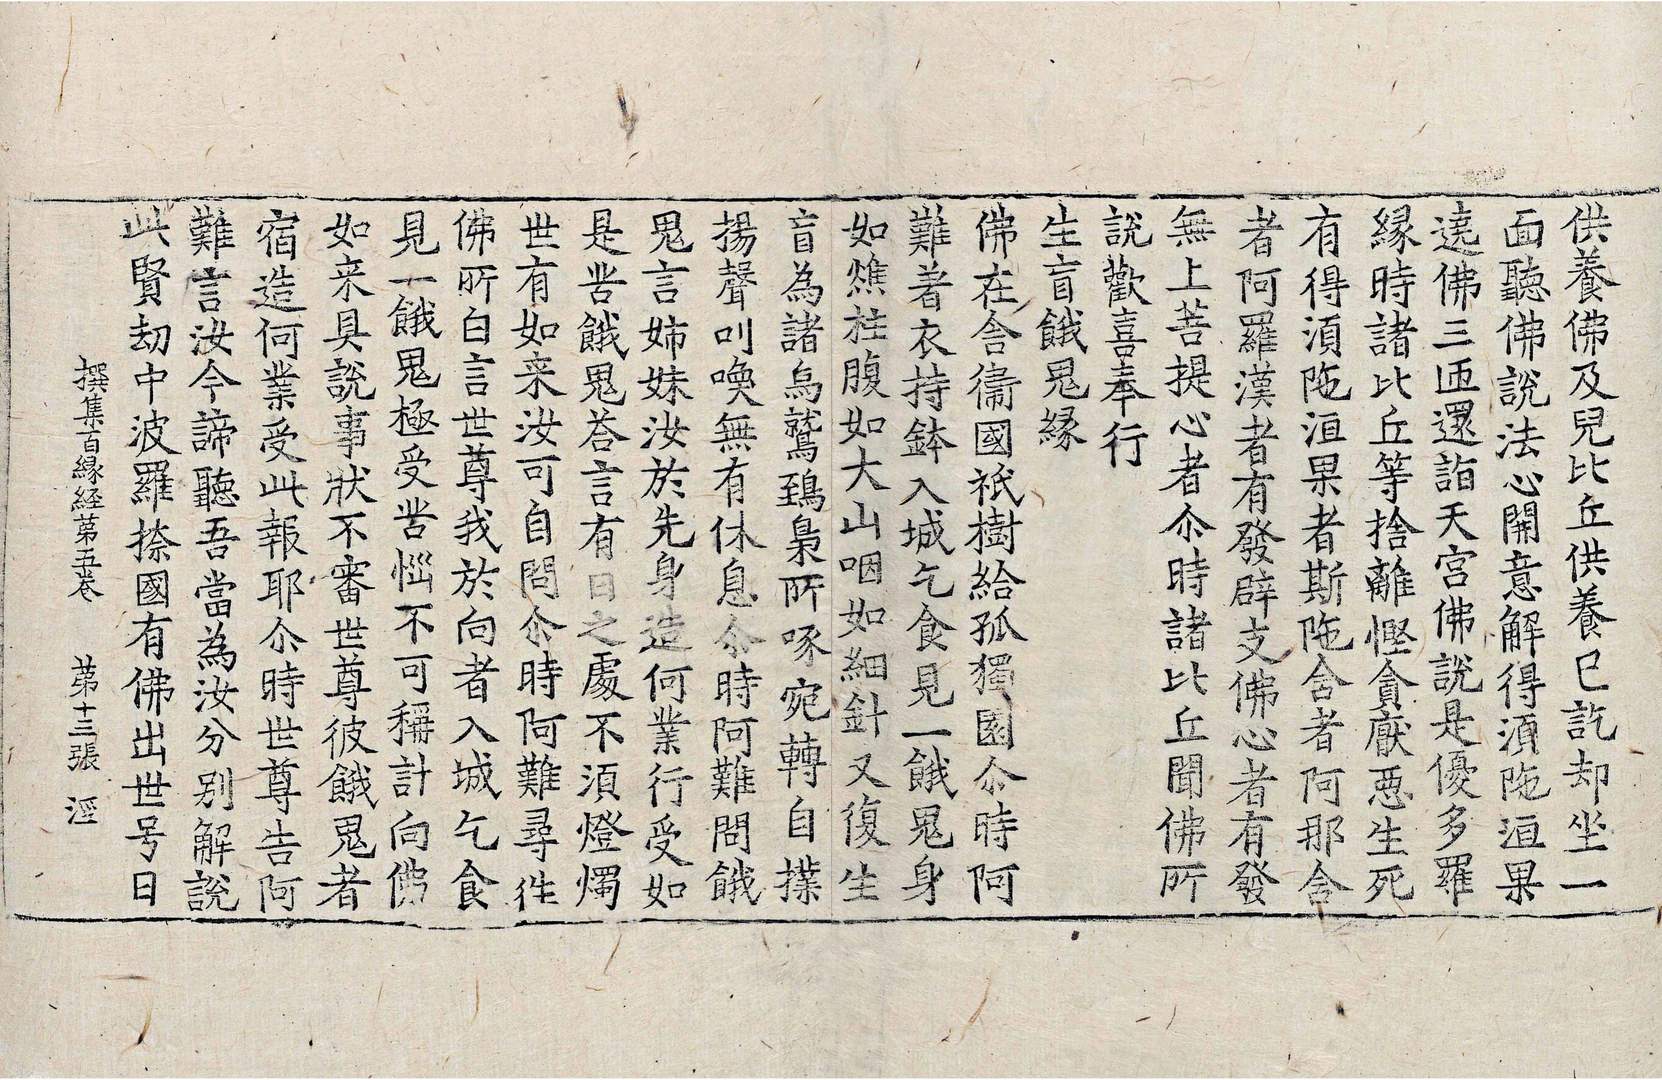 供養佛及兒比丘供養已訖却坐一
面聽佛說法心開意解得湏陁洹果
遶佛三迊還詣天宮佛說是優多羅
縁時諸比丘等捨離慳貪厭惡生死
有得湏陁洹果者斯陁含者阿那含
者阿羅漢者有發辟支佛心者有發
無上菩提心者尒時諸比丘聞佛所
說歡喜奉行
生盲餓鬼縁
佛在舍衞國祇樹給孤獨園尒時阿
難著衣持鉢入城乞食見一餓鬼身
如燋柱腹如大山咽如細針又復生
盲為諸烏鷲鵄梟所啄宛轉自撲
揚聲叫喚無有休息尒時阿難問餓
鬼言姉妹汝於先身造何業行受如
是苦餓鬼荅言有日之處不湏燈燭
世有如来汝可自問尒時阿難尋徃
佛所白言世尊我於向者入城乞食
見一餓鬼極受苦惱不可稱計向佛
如来具說事狀不審世尊彼餓鬼者
宿造何業受此報耶尒時世尊告阿
難言汝今諦聽吾當為汝分別解說
此賢劫中波羅捺國有佛出世号曰
撰集百縁経第五卷 第十三張 涇